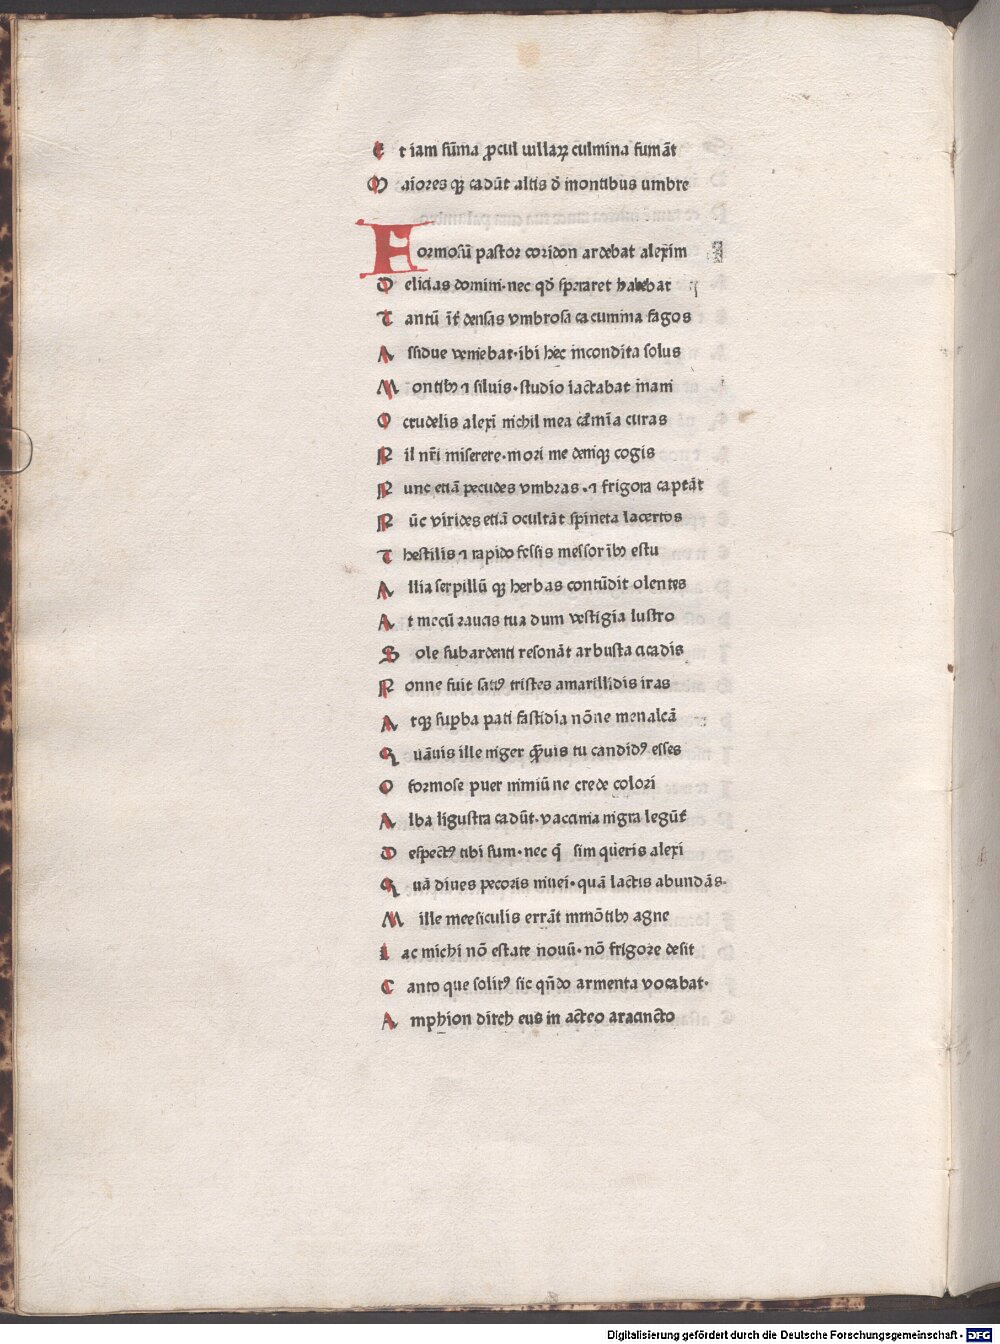 E t iam sūma ꝓcul uillaꝝ culmina fumāt
M aiores qȝ cadūt altis d̄ montibus umbre
F ormosū pastor coridon ardebat alexim
D elicias domini·nec qd̄ speraret habebat
T antū īt̄ densas vmbrosa cacumina fagos
A ssidue veniebat·ibi hec incondita solus
M ontibꝫ ⁊ siluis·studio iactabat inani
O crudelis alexi nichil mea cārmīa curas
N il nr̄i miserere·mori me deniqȝ cogis
N unc etiā pecudes vmbras·⁊ frigora captāt
N ūc virides etiā ocultāt spineta lacertos
T hestilis ⁊ rapido fessis messoribꝫ estu
A llia serpillū qȝ herbas contūdit olentes
A t mecū raucis tua dum vestigia lustro
S ole sub ardenti resonāt arbusta cicadis
N onne fuit satiꝰ tristes amarillidis iras
A tqȝ suꝑba pati fastidia nōne menalcā
Q uāuis ille niger quāuis tu candidꝰ esses
O formose puer nimiū ne crede colori
A lba ligustra cadūt·vaccinia nigra legūt̄
D espectꝰ tibi sum·nec q̄ sim queris alexi
Q uā diues pecoris niuei·quā lactis abundās·
M ille mee siculis errāt in mōtibꝫ agne
L ac michi nō estate nouū·nō frigore desit
C anto que solitꝰ sic qn̄do armenta vocabat·
A mphion dirch eus in acteo aracincto
Digitalisierung gefördert durch die Deutsche Forschungsgemeinschaft - DFG